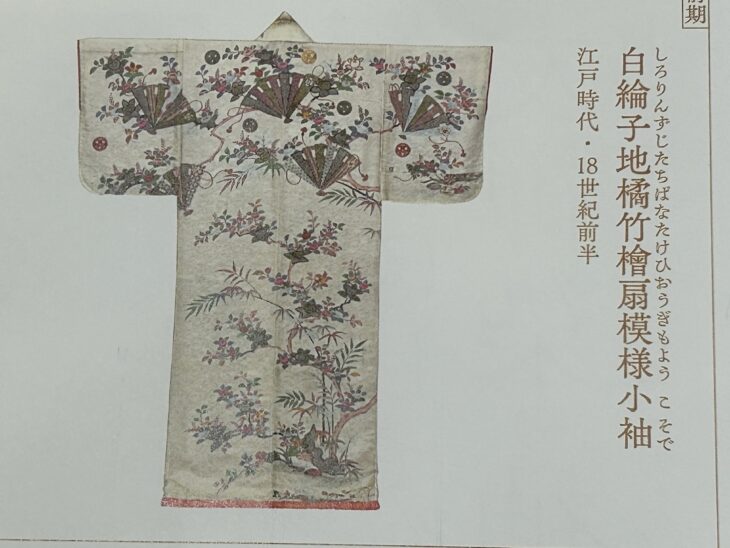 前期
しろりんずじたちばなたけひおうぎもよう こそで
白綸子地橘竹檜扇模様小袖
江戸時代・18世紀前半